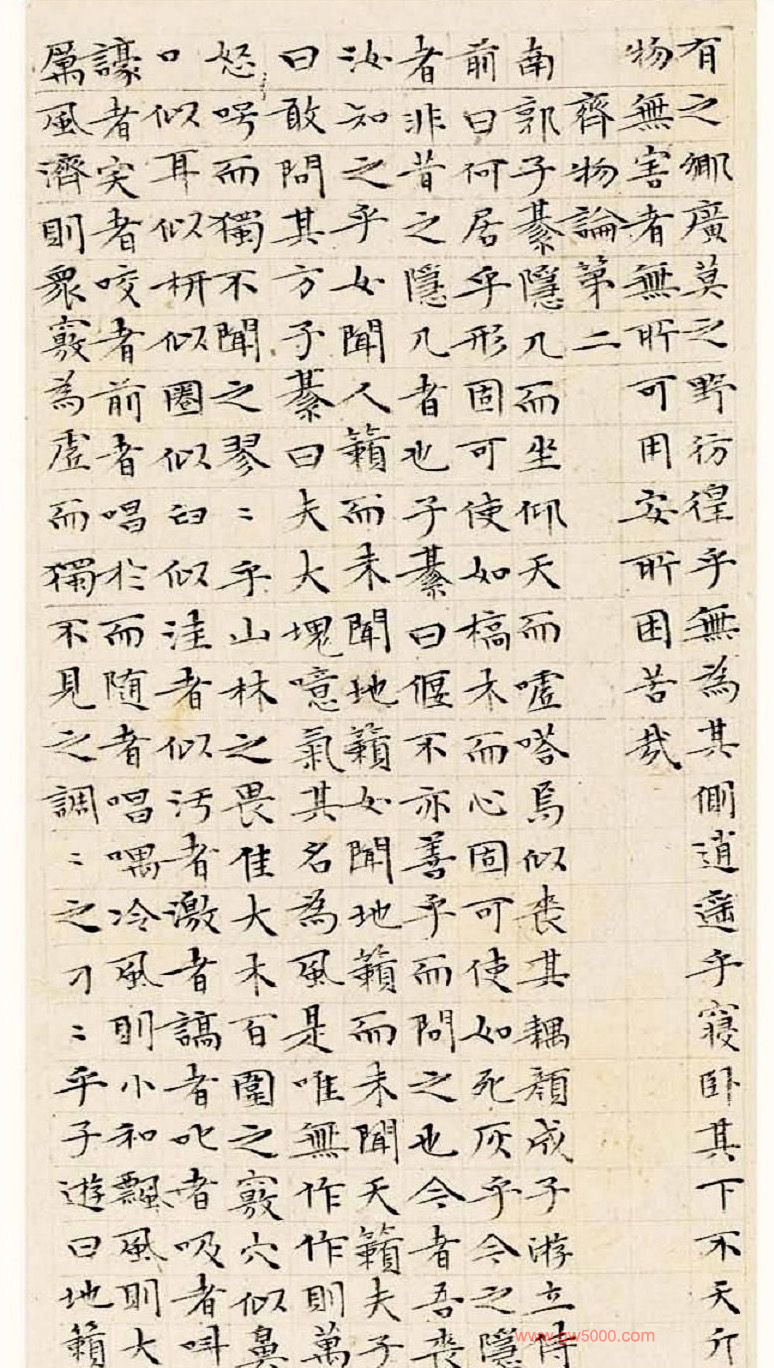 有之鄉廣莫之野彷徨乎無為其側逍遥乎寝卧其下不夭斤
物無害者無所可用安所困苦哉
齊物論第二
南郭子綦隱几而坐仰天而嘘嗒焉似喪其耦顔成子游立侍
前曰何居乎形固可使如槁木而心固可使如死灰乎今之隱
者非昔之隱几者也子綦曰偃不亦善乎而問之也今者吾喪
汝知之乎女聞人籟而未聞地籟女聞地籟而未聞天籟夫子
曰敢問其方子綦曰夫大塊噫氣其名為風是唯無作作則萬
怒呺而獨不聞之翏〻乎山林之畏佳大木百圍之竅穴似鼻
口似耳似枅似圈似臼似洼者似汚者激者謞者叱者吸者叫
譹者宎者咬者前者唱於而随者唱喁冷風則小和飄風則大
厲風濟則衆竅為虚而獨不見之調〻之刁〻乎子遊曰地籟